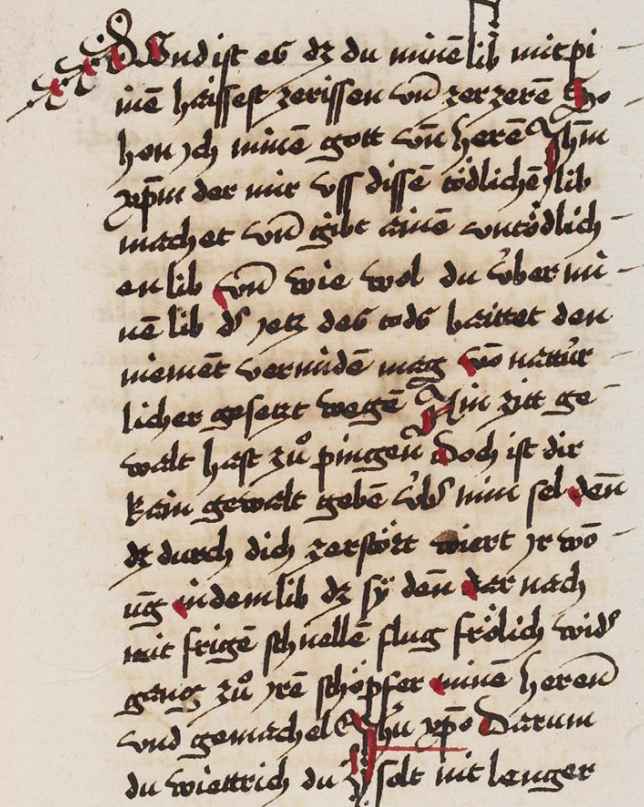 Vnd ist es dz du minē lib mit pi
nē haissest zerissen vn̄ zerzerē So
hon ich minē gott vn̄ herē Jhm̄
xp̄m der mir vss dissē tödlichē lib
machet vn̄ gibt ainē vntödlich
en lib vn̄ wie wol du v̈ber mi
nē lib dˢ yetz des tods baittet den
niemēt vermidē mag vō nattur
licher gesetzt wegē Ain zitt ge
walt hast zů pingen̄ Doch ist dir
kain gewalt gebē v̈bˢ min sel den̄
dz durch dich zerstört wiert yr wō
ūg in dem lib dz sÿ den̄ dar nach
mit frigē schnellē flug frölich widˢ
gang zů yrē schöpfer minē heren̄
vnd gemachel Jhū xp̄o Darum
du wiettrich du solt nit lenger